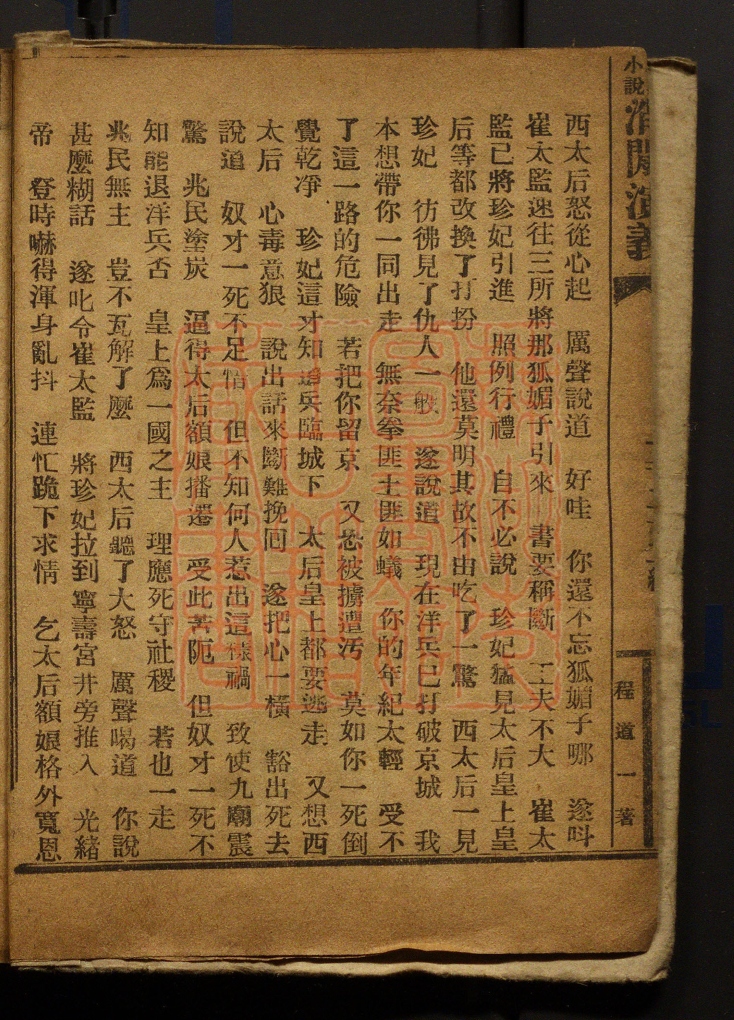 小說消閒演義
程道一著
西太后怒從心起　厲聲說道　好哇　你還不忘狐媚子哪　遂呌
崔太監速往三所將那狐媚子引來　書要稱斷　工夫不大　崔太
監已將珍妃引進　照例行禮　自不必說　珍妃猛見太后皇上皇
后等都改換了打扮　他還莫明其故不由吃了一驚　西太后一見
珍妃　彷彿見了仇人一般　遂說道　現在洋兵已打破京城　我
本想帶你一同出走　無奈拳匪土匪如蟻　你的年紀太輕　受不
了這一路的危險　若把你留京　又恐被擄遭汚　莫如你一死倒
覺乾凈　珍妃這才知追兵臨城下　太后皇上都要逃走　又想西
太后　心毒意狠　說出話來斷難挽囘　遂把心一橫　豁出死去
說道　奴才一死不足惜　但不知何人惹出這樣禍　致使九廟震
驚　兆民塗炭　逼得太后額娘播遷　受此苦阨　但奴才一死不
知能退洋兵否　皇上爲一國之主　理應死守社稷　若也一走
兆民無主　豈不瓦解了麼　西太后聽了大怒　厲聲喝道　你說
甚麼糊話　遂叱令崔太監　將珍妃拉到寧壽宮井旁推入　光緒
帝　登時嚇得渾身亂抖　連忙跪下求情　乞太后額娘格外寬恩